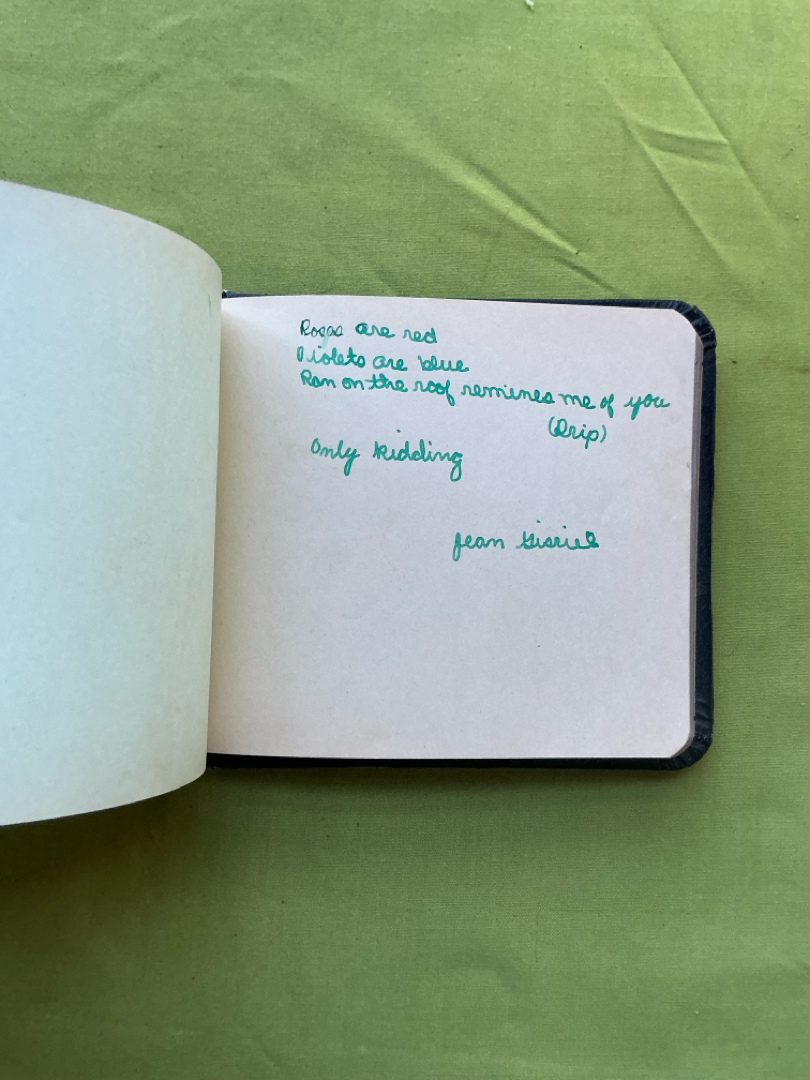 Roses are red
Violets are blue
Ran on the roof remines me of you
(Drip)
Only kidding
Jean